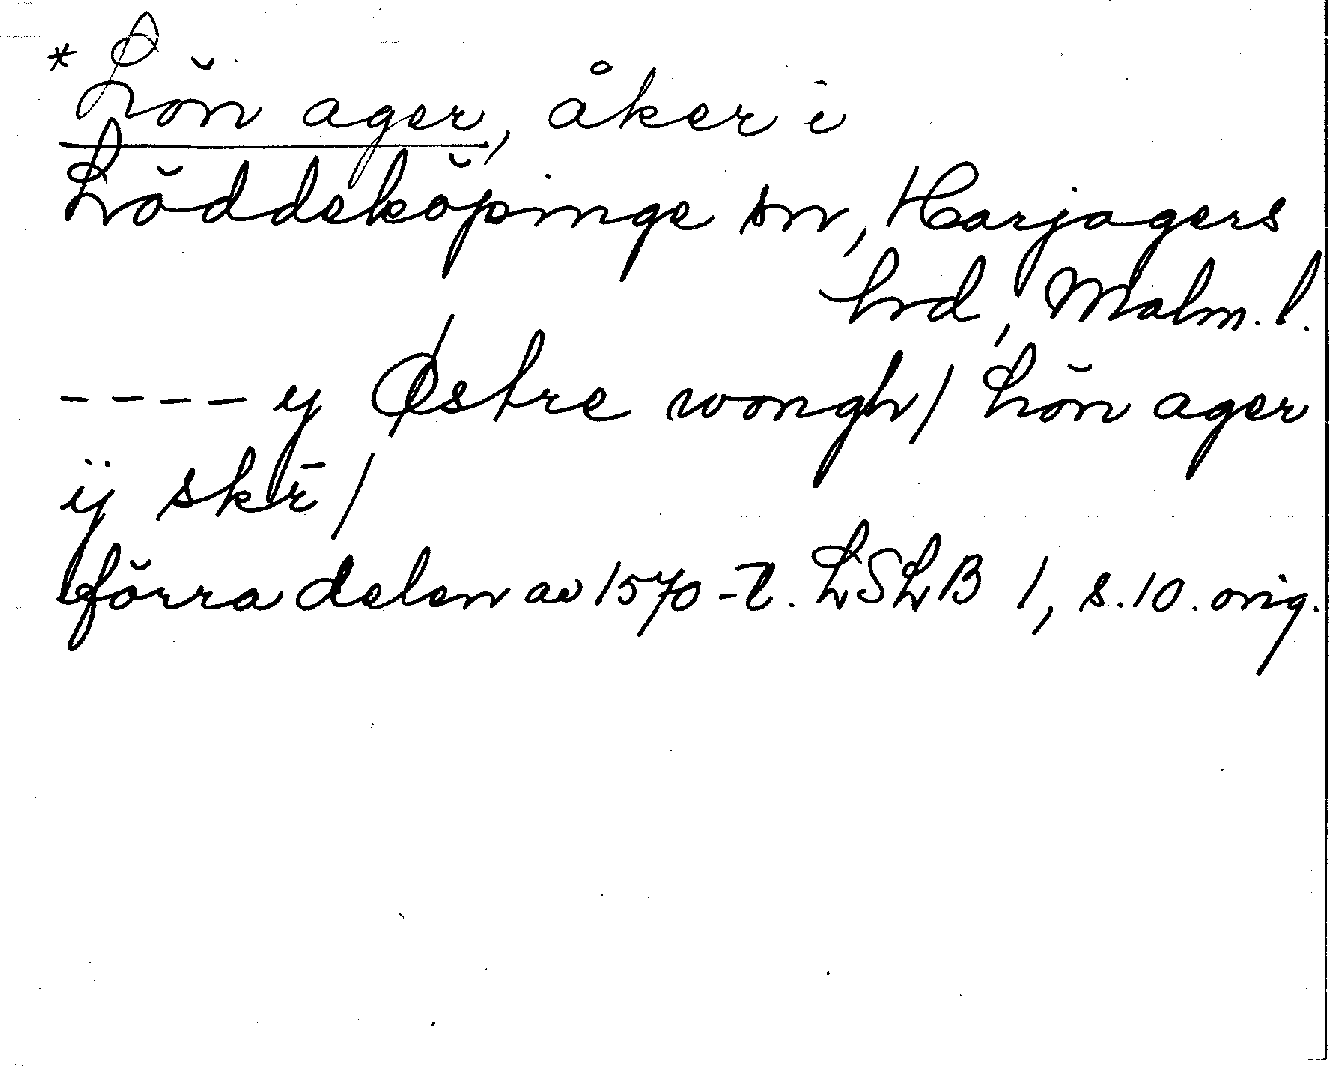 *Lön ager, åker i
Löddeköpinge sn, Harjagers
hrd, Malm. l.
---- y Østre wongh/ Lön ager
ij skr̄/
förra delen av 1570-t. LSLB 1, s. 10. orig.